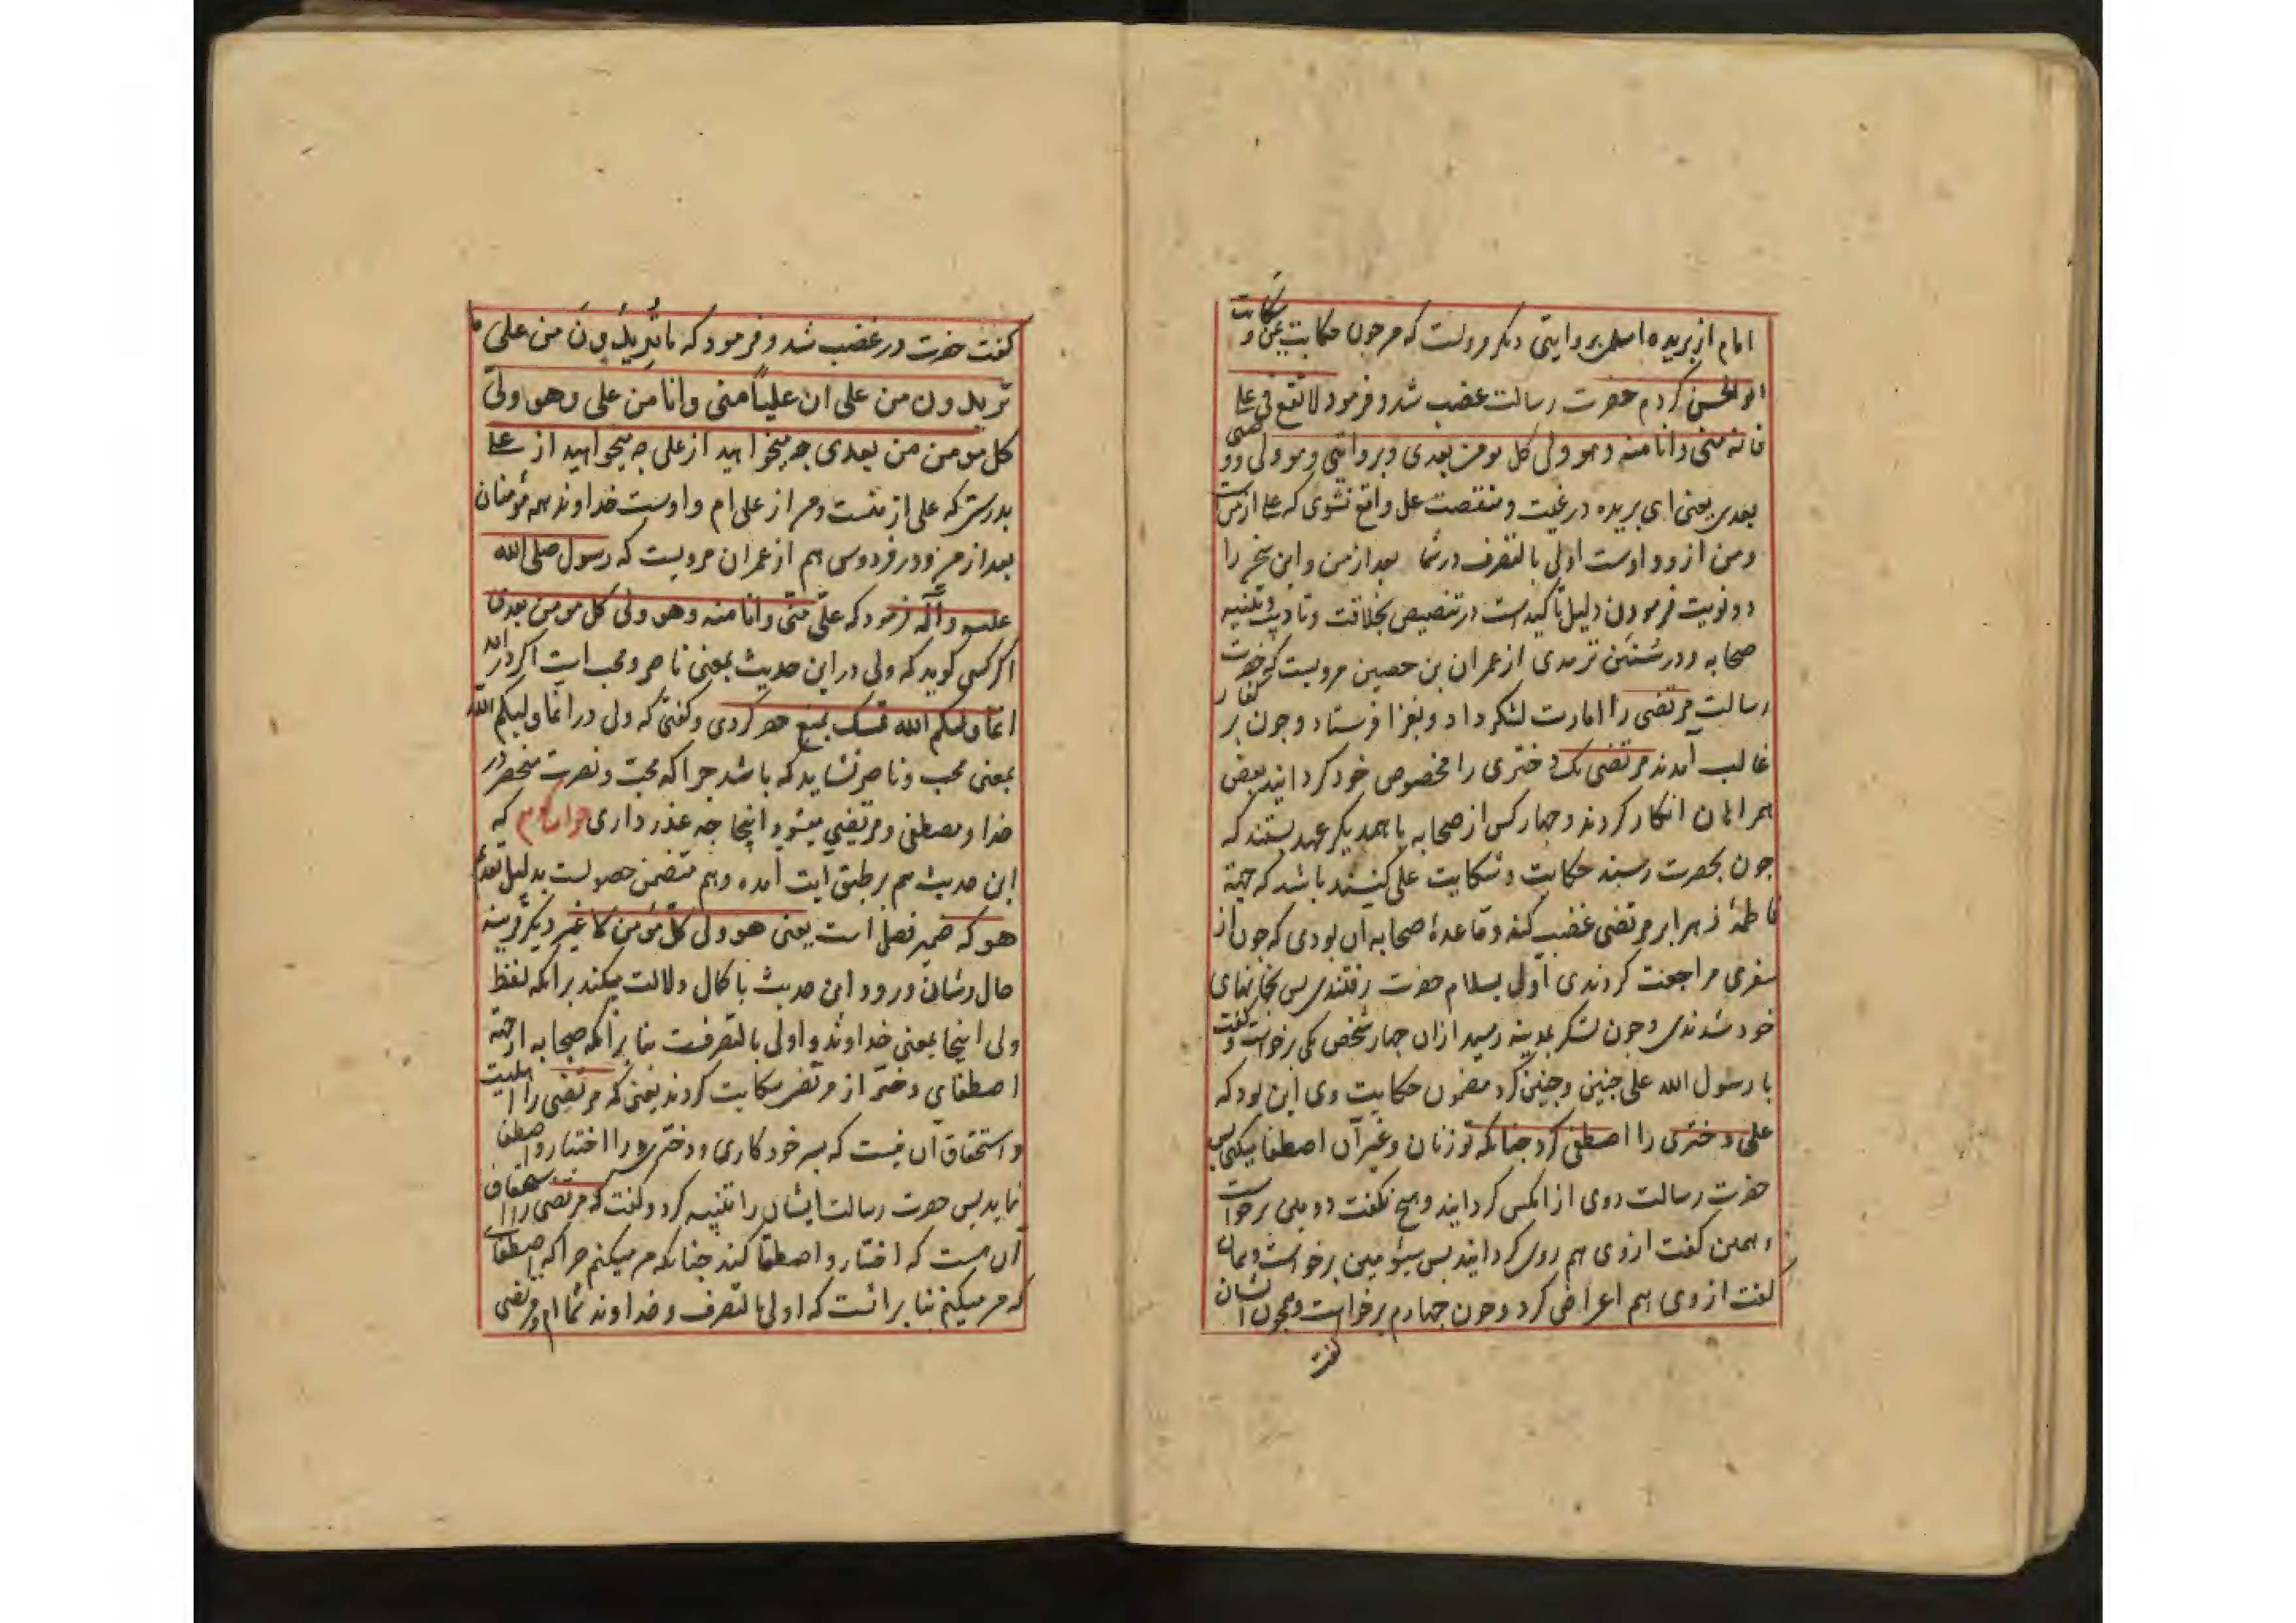 امام از بریده اسلمی بروایتی دیگر مرویست که من چون حکایت و شکایت
ابوالحسن کردم حضرت رسالت غضب شد و فرمود لا تقع فی علی
فانه منی وانا منه وهو ولی کل مومن بعدی وبروایتی وهو ولی
بعدی یعنی ای بریده در غیبت و منقصت علی واقع نشوی که علی از من است
ومن از وو اوست اولی بالتصرف در شما بعد از من و این سخن را
دو نوبت فرمودن دلیل تاکید است در تنصیص بخلافت و تادیب و تنبیه
صحابه و در سنن ترمدی از عمران بن حصین مرویست که حضرت
رسالت مرتضی را امارت لشکر داد و بغزا فرستاد و چون بر کفار
غالب آمدند مرتضی یک دختری را مخصوص خود کردانید بعضی
همراهان انکار کردند و چهار کس از صحابه با همدیگر عهد بستند که
چون بحضرت رسند حکایت و شکایت علی کنند باشد که جهة
فاطمهٔ زهرا بر مرتضی غضب کند و قاعدهٔ صحابه آن بودی که چون از
سفری مراجعت کردندی اول بسلام حضرت رفتندی پس بخانهای
خود شدندی و چون لشکر بمدینه رسید ازان چهار شخص یکی برخواست و گفت
یا رسول الله علی چنین و چنین کرد مضمون حکایت وی این بود که
علی دختری را اصطفی کرد چنانکه تو زنان و غیر آن اصطفا میکنی پس
حضرت رسالت روی از آنکس کردانید و هیچ نگفت دویمین برخواست
وهمین گفت از وی هم روی کردانید پس سیومین برخواست و همان
گفت از وی هم اعراض کرد و چون چهارم برخواست و همچون ایشان
گفت
گفت حضرت در غضب شد و فرمود که ما تریدون من علی ما
تریدون من علی ان علیاً منی وانا من علی وهو ولی
کل مومن من بعدی چه میخواهید از علی چه میخواهید از علی
بدرستی که علی از منست و من از علی ام و اوست خداوند همه مؤمنان
بعد از من و در فردوس هم از عمران مرویست که رسول صلی الله
علیه وآله فرمود که علی منی وانا منه وهو ولی کل مومن بعدی
اگر کسی گوید که ولی در این حدیث بمعنی ناصر و محب است اگر در آیه
انما ولیکم الله تمسک بمنع حصر کردی و گفتی که ولی در انما ولیکم الله
بمعنی محب و ناصر نشاید که باشد چرا که محبت و نصرت منحصر در
خدا و مصطفی و مرتضی میشود اینجا چه عذر داری جواب گویم که
این حدیث هم بر طبق آیت آمده و هم متضمن حصر است بدلیل تقدیم
هو که ضمیر فصل است یعنی هو ولی کل مؤمن لا غیر دیگر قرینه
حال و شان ورود این حدیث با کمال دلالت میکند بر آنکه لفظ
ولی اینجا بمعنی خداوند و اولی بالتصرفست بنا بر آنکه صحابه از جهة
اصطفای دختر از مرتضی شکایت کردند یعنی که مرتضی را اهلیت
و استحقاق آن نیست که بسر خود کاری و دختری را اختیار و اصطفا
نماید پس حضرت رسالت ایشان را تنبیه کرد و گفت که مرتضی را استحقاق
آن هست که اختیار و اصطفا کند چنانکه من میکنم چرا که اصطفای
که من میکنم بنا بر آنست که اولی بالتصرف و خداوند شما ام و مرتضی